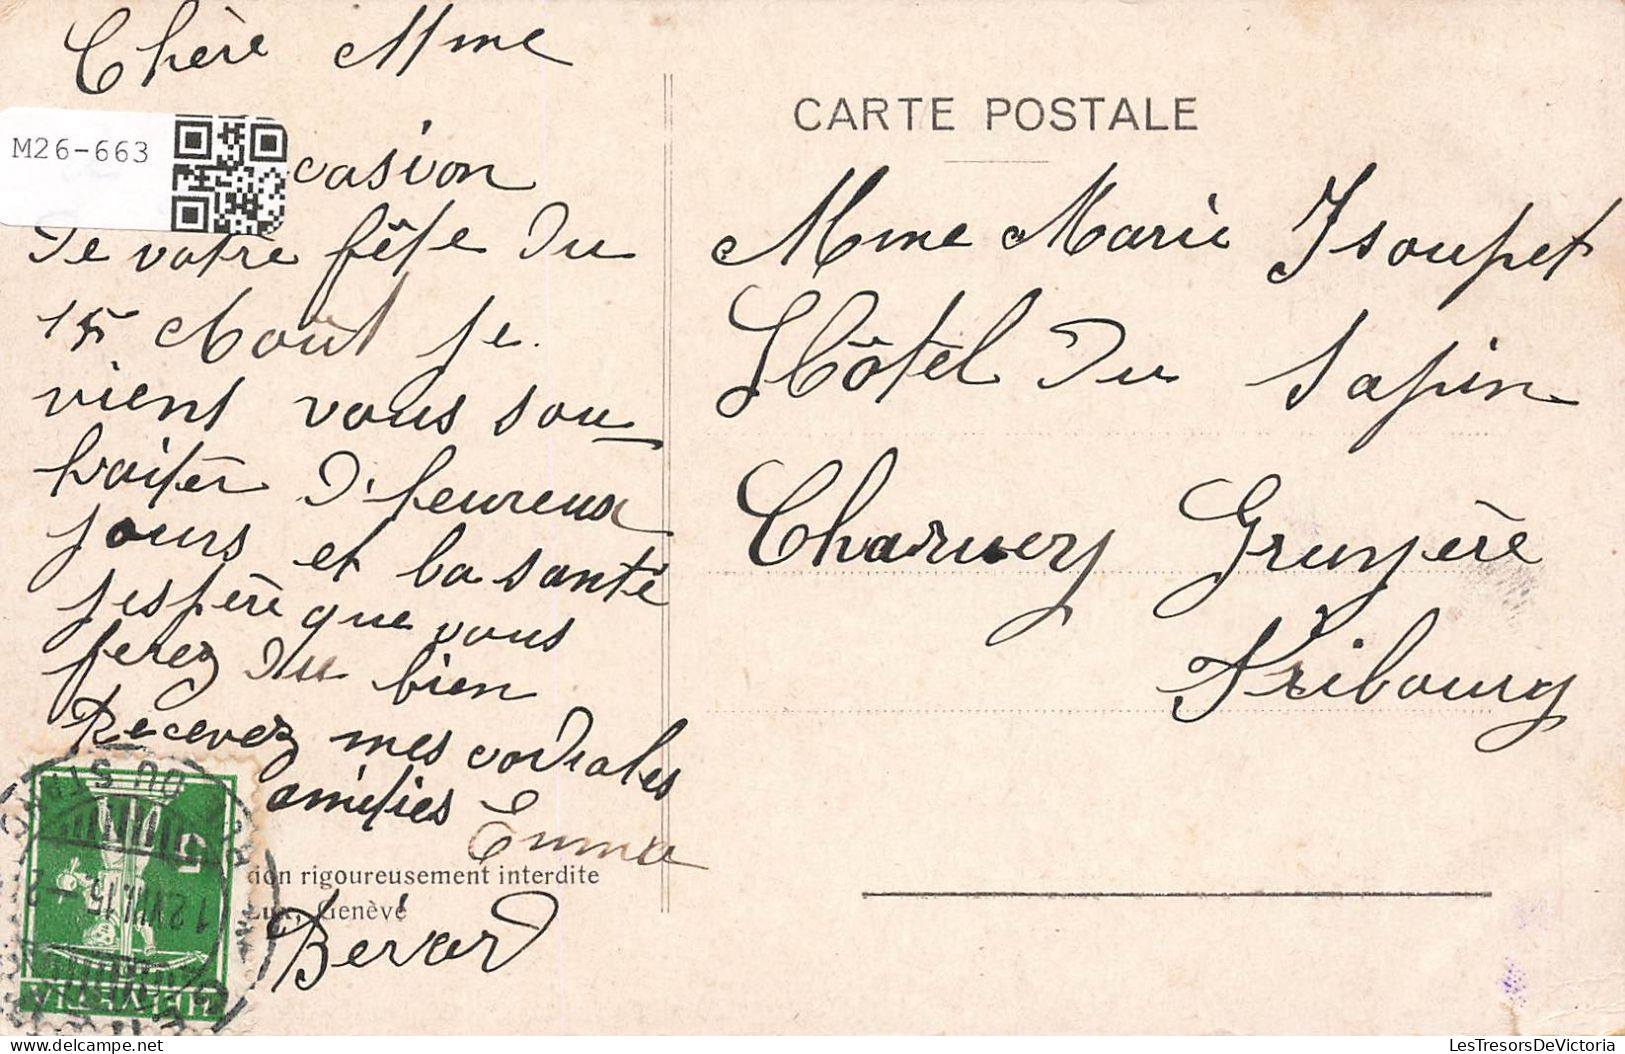 Chère Mme
M26-663
casion
De votre fête du
15 Août je
vient vous sou
haiter d'heureux
jours et la santé
j'espère que vous
ferez du bien
Recevez mes cordiales
amitiés Emma
Berard
CARTE POSTALE
Mme Marie Isoupet
Hôtel du Sapin
Charmey Gruyère
Fribourg
tion rigoureusement interdite
Lux, Genève
5
HELVETIA
12.VIII.15.-2
LesTresorsDeVictoria